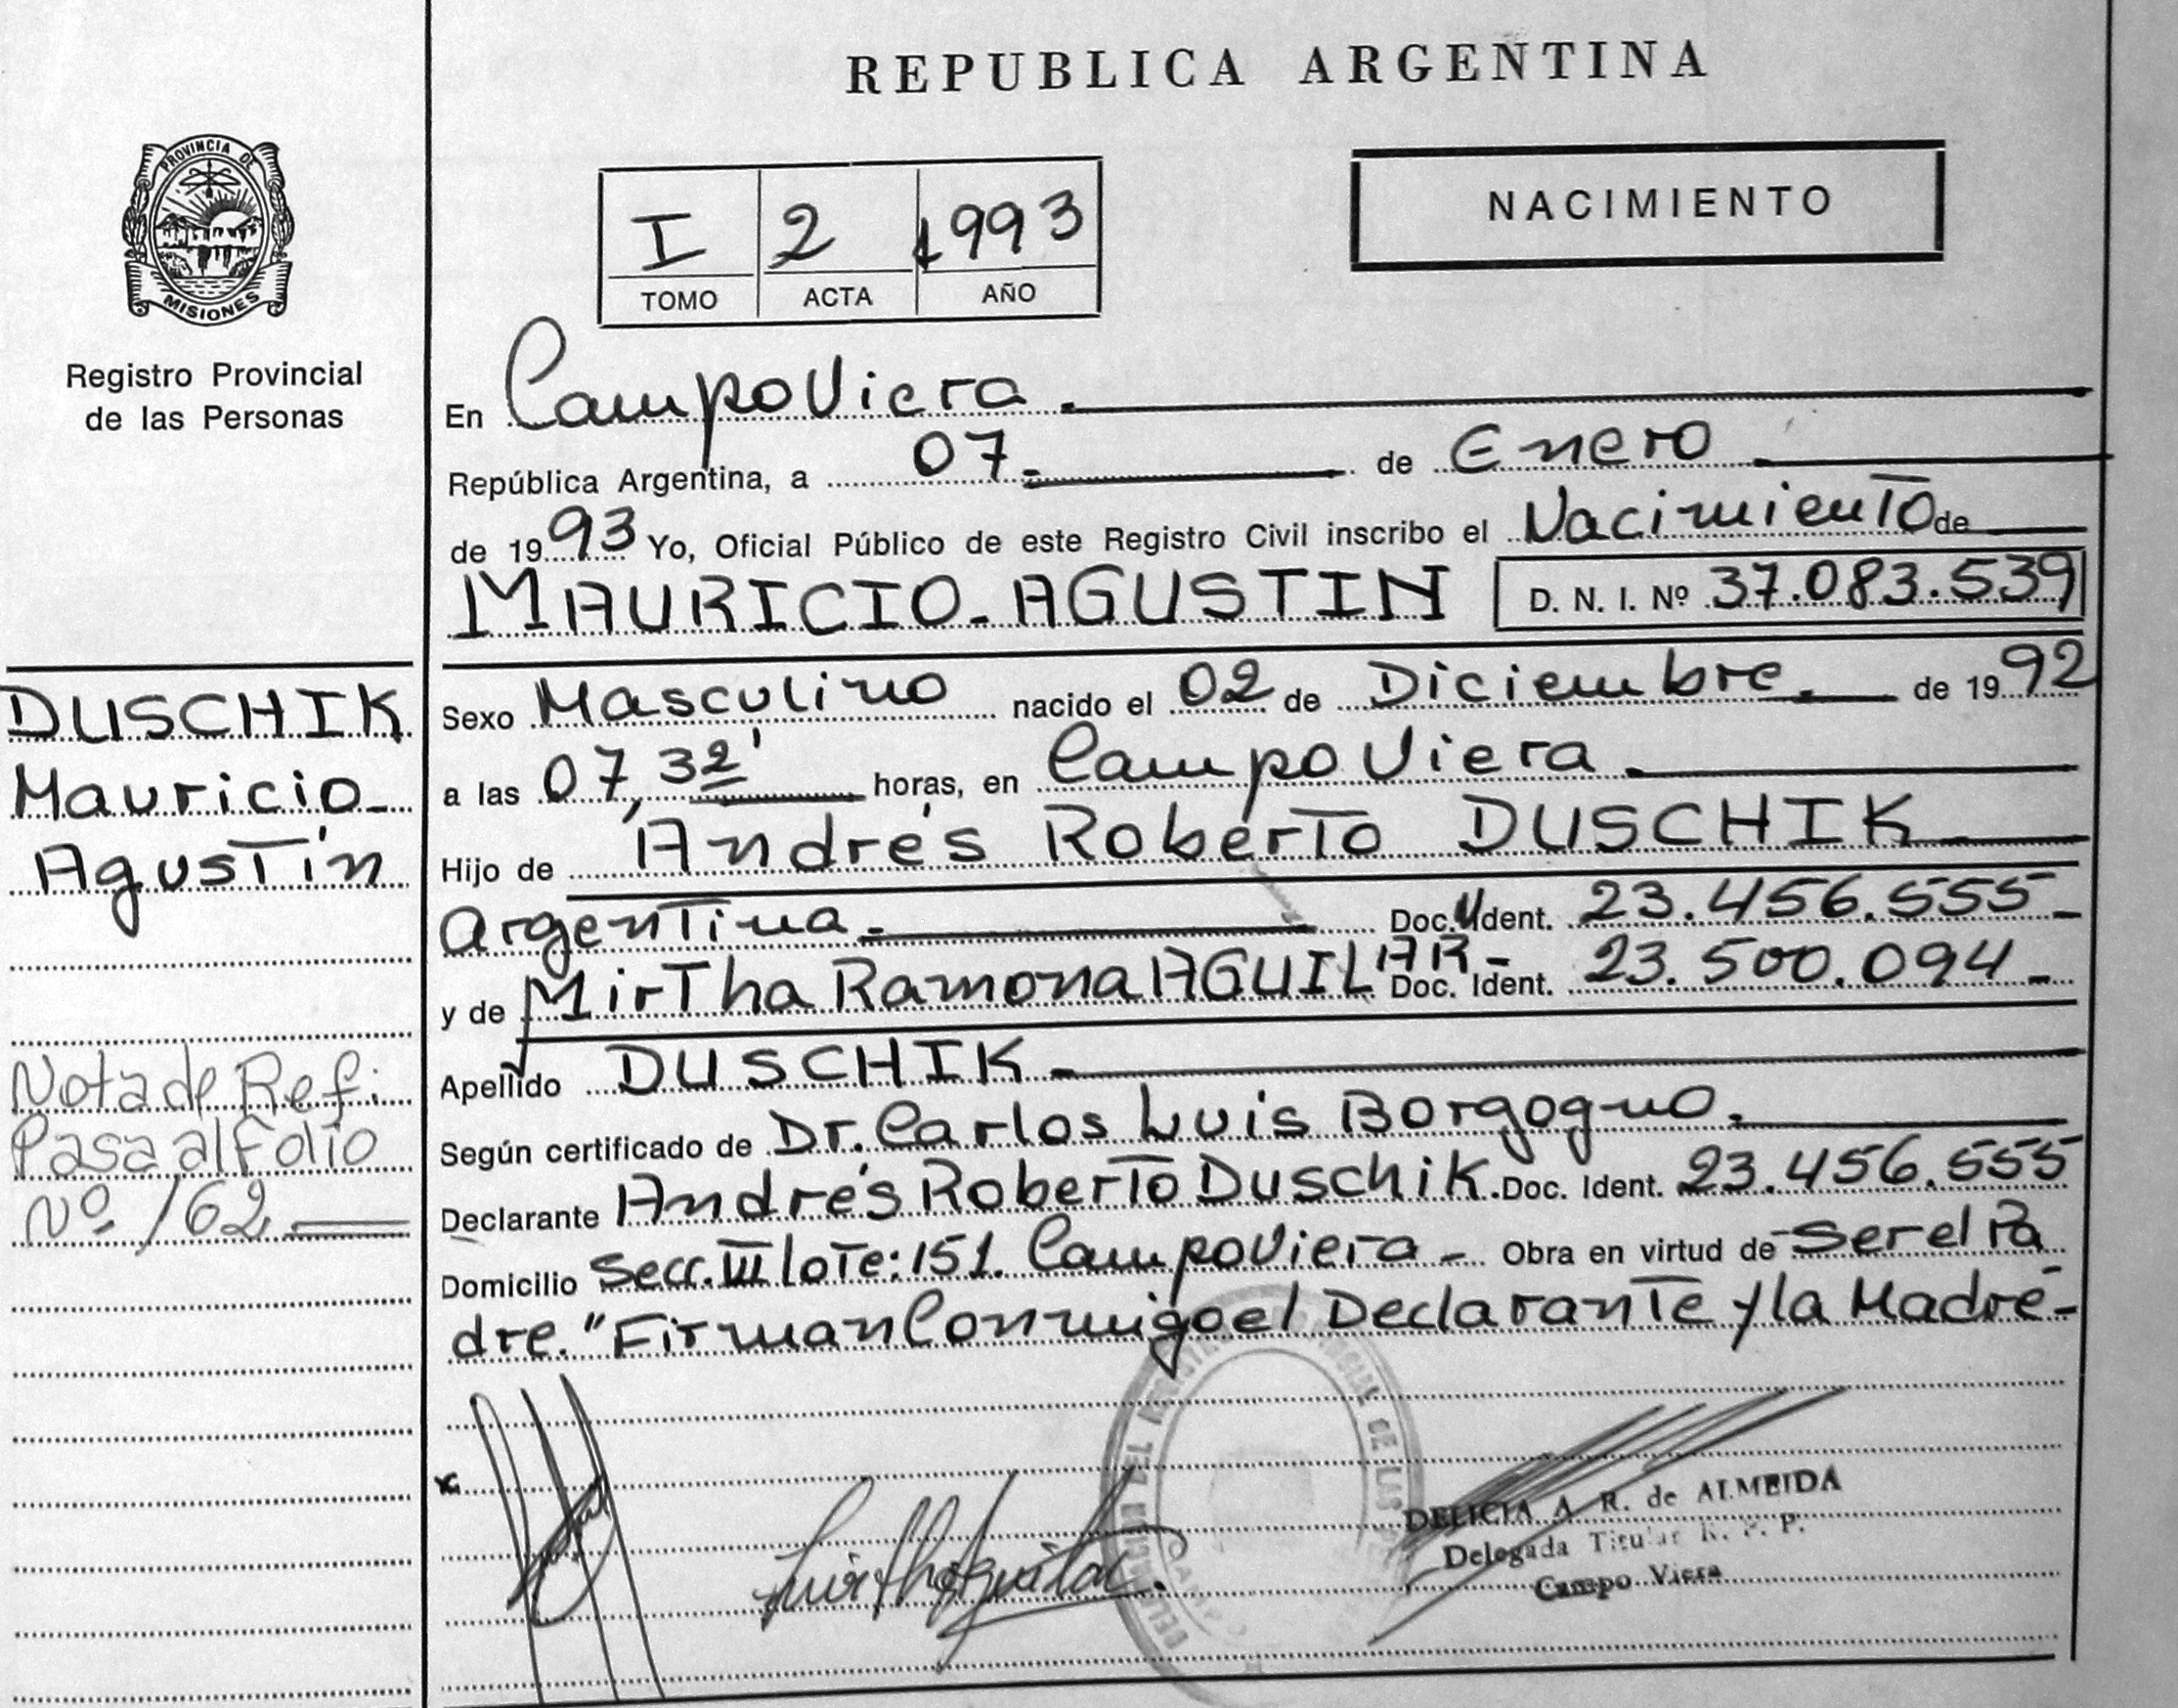 REPUBLICA ARGENTINA
PROVINCIA DE
MISIONES
Registro Provincial
de las Personas
NACIMIENTO
I 2 1993
TOMO ACTA AÑO
En Campo Viera.
República Argentina, a 07. de Enero
de 1993 Yo, Oficial Público de este Registro Civil inscribo el Nacimiento de
MAURICIO-AGUSTIN D. N. I. Nº 37.083.539
DUSCHIK
Mauricio-
Agustín
Nota de Ref:
Pasa al Folio
Nº /62
Sexo Masculino nacido el 02 de Diciembre. de 1992
a las 07,32' horas, en Campo Viera.
Hijo de Andrés Roberto DUSCHIK
Argentina. Doc. Ident. 23.456.555-
y de Mirtha Ramona AGUILAR- Doc. Ident. 23.500.094-
Apellido DUSCHIK-
Según certificado de Dr. Carlos Luis Borgogno.
Declarante Andrés Roberto Duschik. Doc. Ident. 23.456.555
Domicilio Secc. III lote: 151. Campo Viera- Obra en virtud de ser el Pa
dre." Firman Conmigo el Declarante y la Madre-
DELICIA A. R. de ALMEIDA
Delegada Titular R. P. P.
Campo Viera